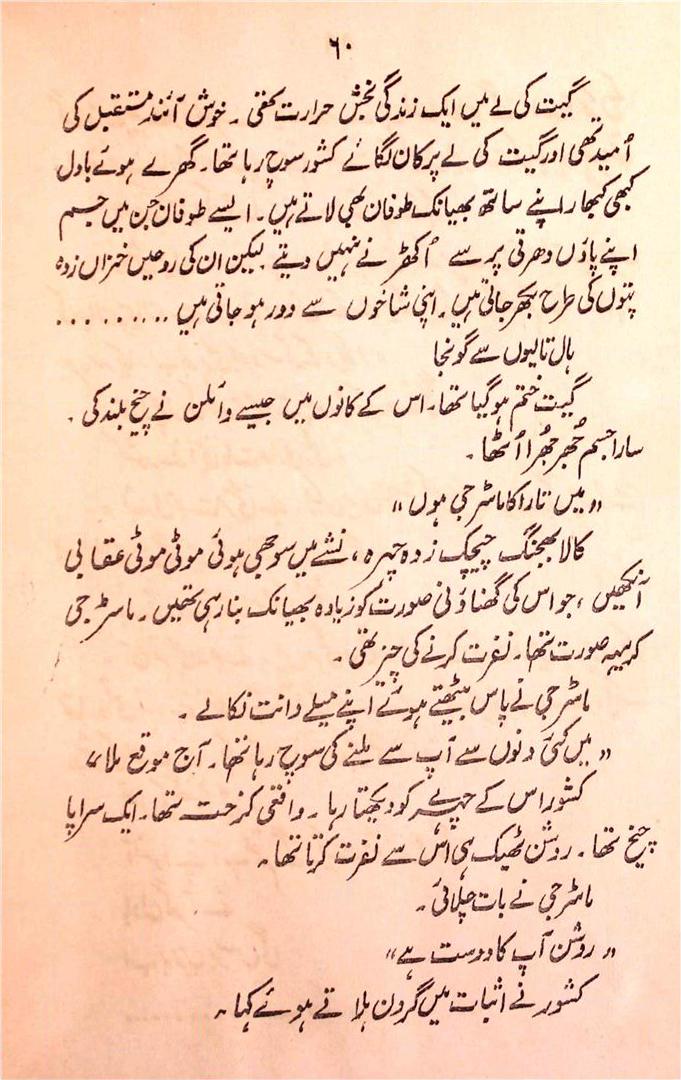 ٦٠
گیت کی لے میں ایک زندگی بخش حرارت تھی ۔ خوش آئند مستقبل کی
اُمید تھی اور گیت کی لے پر کان لگائے کشور سوچ رہا تھا۔ گھرے ہوئے بادل
کبھی کبھار اپنے ساتھ بھیانک طوفان بھی لاتے ہیں۔ ایسے طوفان جن میں جسم
اپنے پاؤں دھرتی پر سے اُکھڑنے نہیں دیتے لیکن ان کی روحیں خزاں زدہ
پتوں کی طرح بکھر جاتی ہیں۔ اپنی شاخوں سے دور ہو جاتی ہیں .........
ہال تالیوں سے گونجا
گیت ختم ہو گیا تھا۔ اس کے کانوں میں جیسے وائلن نے چیخ بلند کی ۔
سارا جسم جُھرجُھرا اُٹھا ۔
"میں تارا کا ماسٹر جی ہوں"
کالا بھجنگ چیچک زدہ چہرہ ، نشے میں سوجھی ہوئی موٹی موٹی عقابی
آنکھیں ، جو اس کی گھناؤنی صورت کو زیادہ بھیانک بنا رہی تھیں ۔ ماسٹر جی
کریہہ صورت تھا۔ نفرت کرنے کی چیز تھی ۔
ماسٹر جی نے پاس بیٹھتے ہوئے اپنے میلے دانت نکالے ۔
"میں کئی دنوں سے آپ سے ملنے کی سوچ رہا تھا۔ آج موقع ملا"
کشور اس کے چہرے کو دیکھتا رہا ۔ واقعی کرخت تھا۔ ایک سراپا
چیخ تھا ۔ روشن ٹھیک ہی اس سے نفرت کرتا تھا ۔
ماسٹر جی نے بات چلائی ۔
"روشن آپ کا دوست ہے"
کشور نے اثبات میں گردن ہلاتے ہوئے کہا ۔